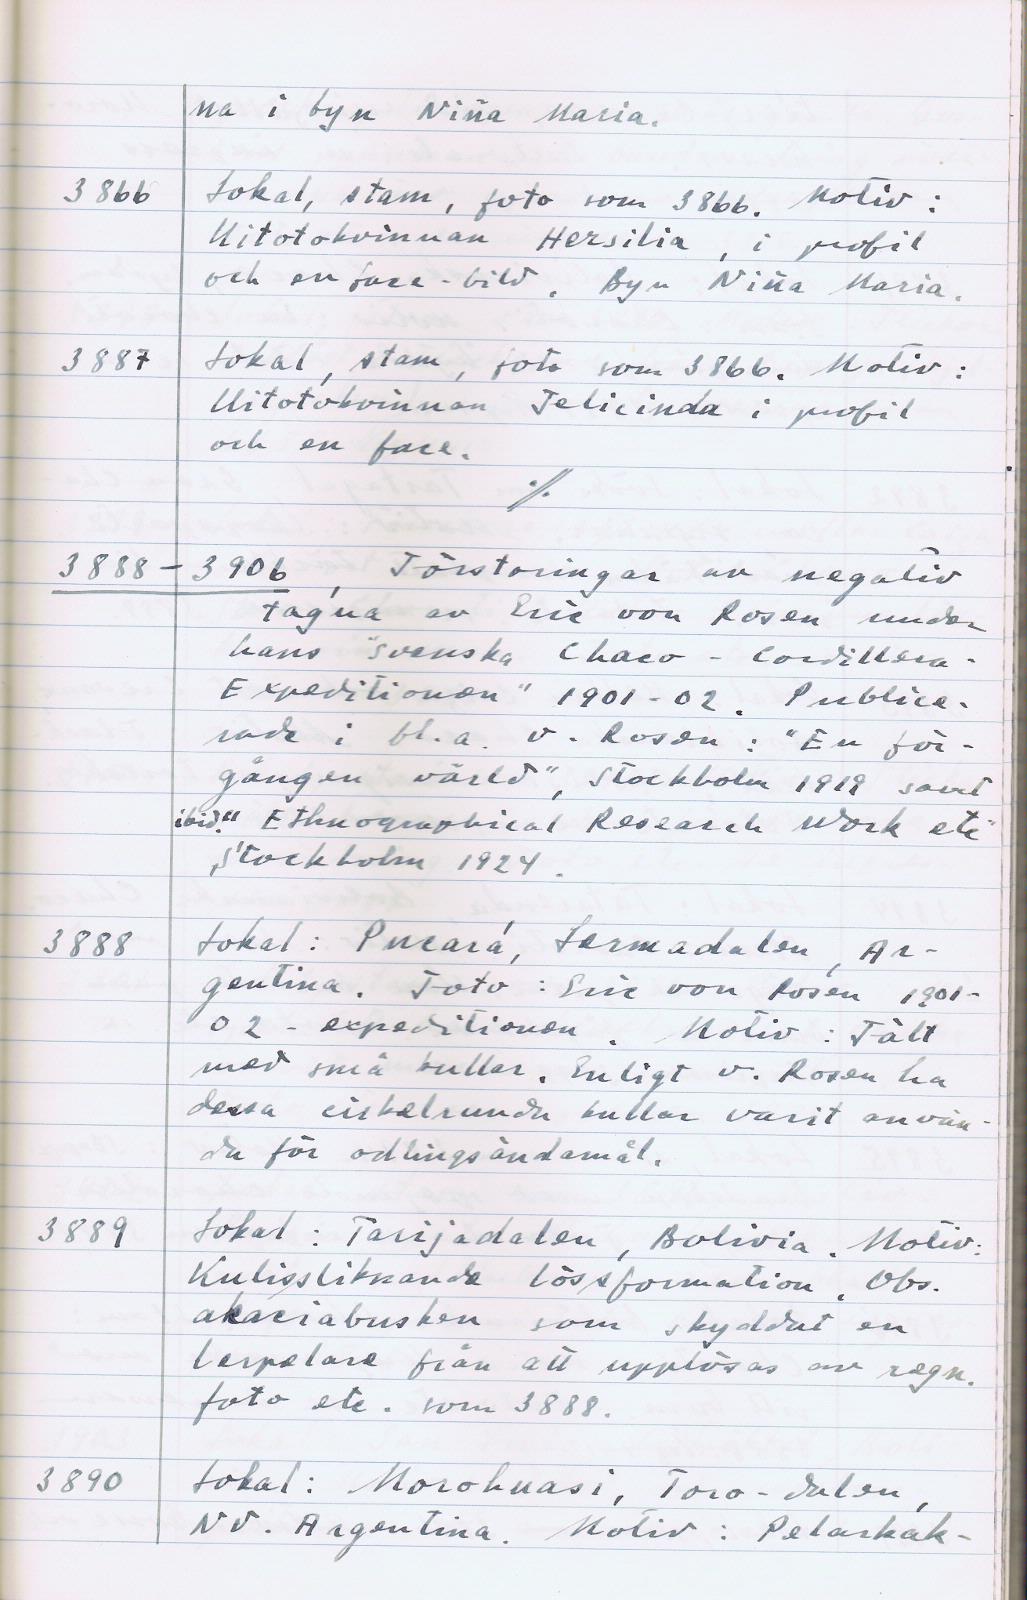 na i byn Niña Maria.
3866 Lokal, stam, foto som 3866. Motiv:
Uitotokvinnan Hersilia, i profil
och en face-bild. Byn Niña Maria.
3887 Lokal, stam, foto som 3866. Motiv:
Uitotokvinnan Felicinda i profil
och en face.
·/.
3888-3906, Förstoringar av negativ
tagna av Eric von Rosen under
hans "Svenska Chaco-Cordillera-
Expeditionen" 1901-02. Publice-
rade i bl.a. v. Rosen: "En för-
gången värld", Stockholm 1919 samt
ibid." Ethnographical Research Work etc"
, Stockholm 1924.
3888 Lokal: Pucará, Lermadalen, Ar-
gentina. Foto: Eric von Rosen 1901-
02-expeditionen. Motiv: Fält
med små kullar. Enligt v. Rosen ha
dessa cirkelrunda kullar varit använ-
da för odlingsändamål.
3889 Lokal: Tarijadalen, Bolivia. Motiv:
Kulissliknande lössformation. Obs.
akaciabusken som skyddat en
lerpelare från att upplösas av regn.
foto etc. som 3888.
3890 Lokal: Morohuasi, Toro-dalen,
NV. Argentina. Motiv: Pelarkak-